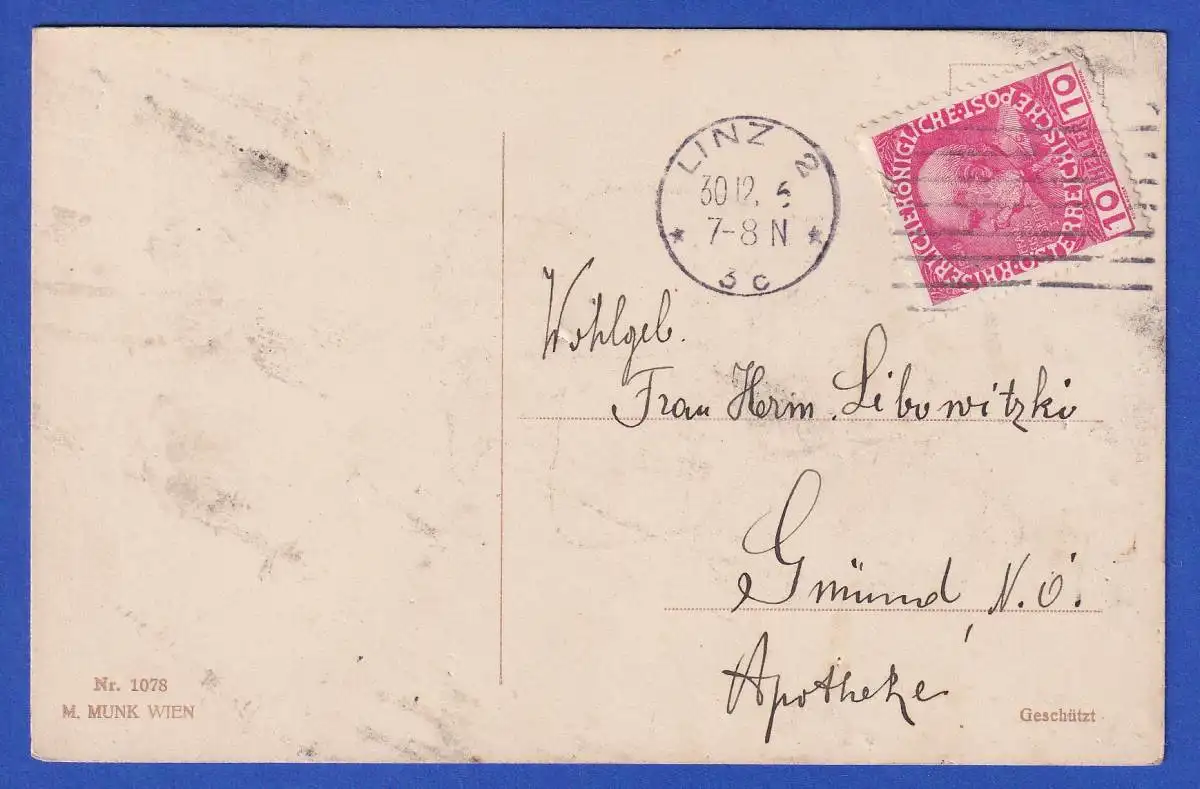 KAISERLICHE KÖNIGLICHE ÖSTERREICHISCHE POST
10 HELLER 10
LINZ 2
30 12. 5
7-8 N
* *
3c
Wohlgeb.
Frau Herm. Libowitzki
Gmünd, N.Ö.
Apotheke
Nr. 1078
M. MUNK WIEN
Geschützt